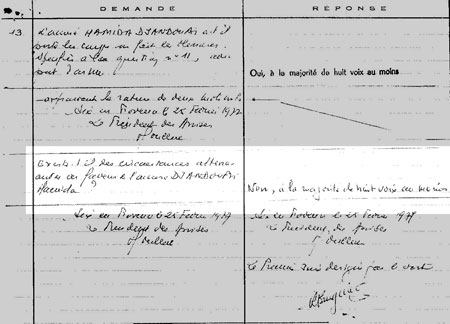 DEMANDE
RÉPONSE
13
L'accusé HAMIDA DJANDOUBI a-t-il
porté les coups
question n° 11,
Oui, à la majorité de huit voix au moins
approuvant la rature de deux mots nuls
Aix en Provence le 25 Février 1977
Le Président des Assises
Existe-t-il des circonstances atténu-
antes en faveur de l'accusé DJANDOUBI
Hamida ?
Non, à la majorité de huit voix au moins
Aix en Provence le 25 Février 1977
Le Président des Assises
Aix en Provence le 25 Février 1977
Le Président des Assises
Le Premier Juré désigné par le sort